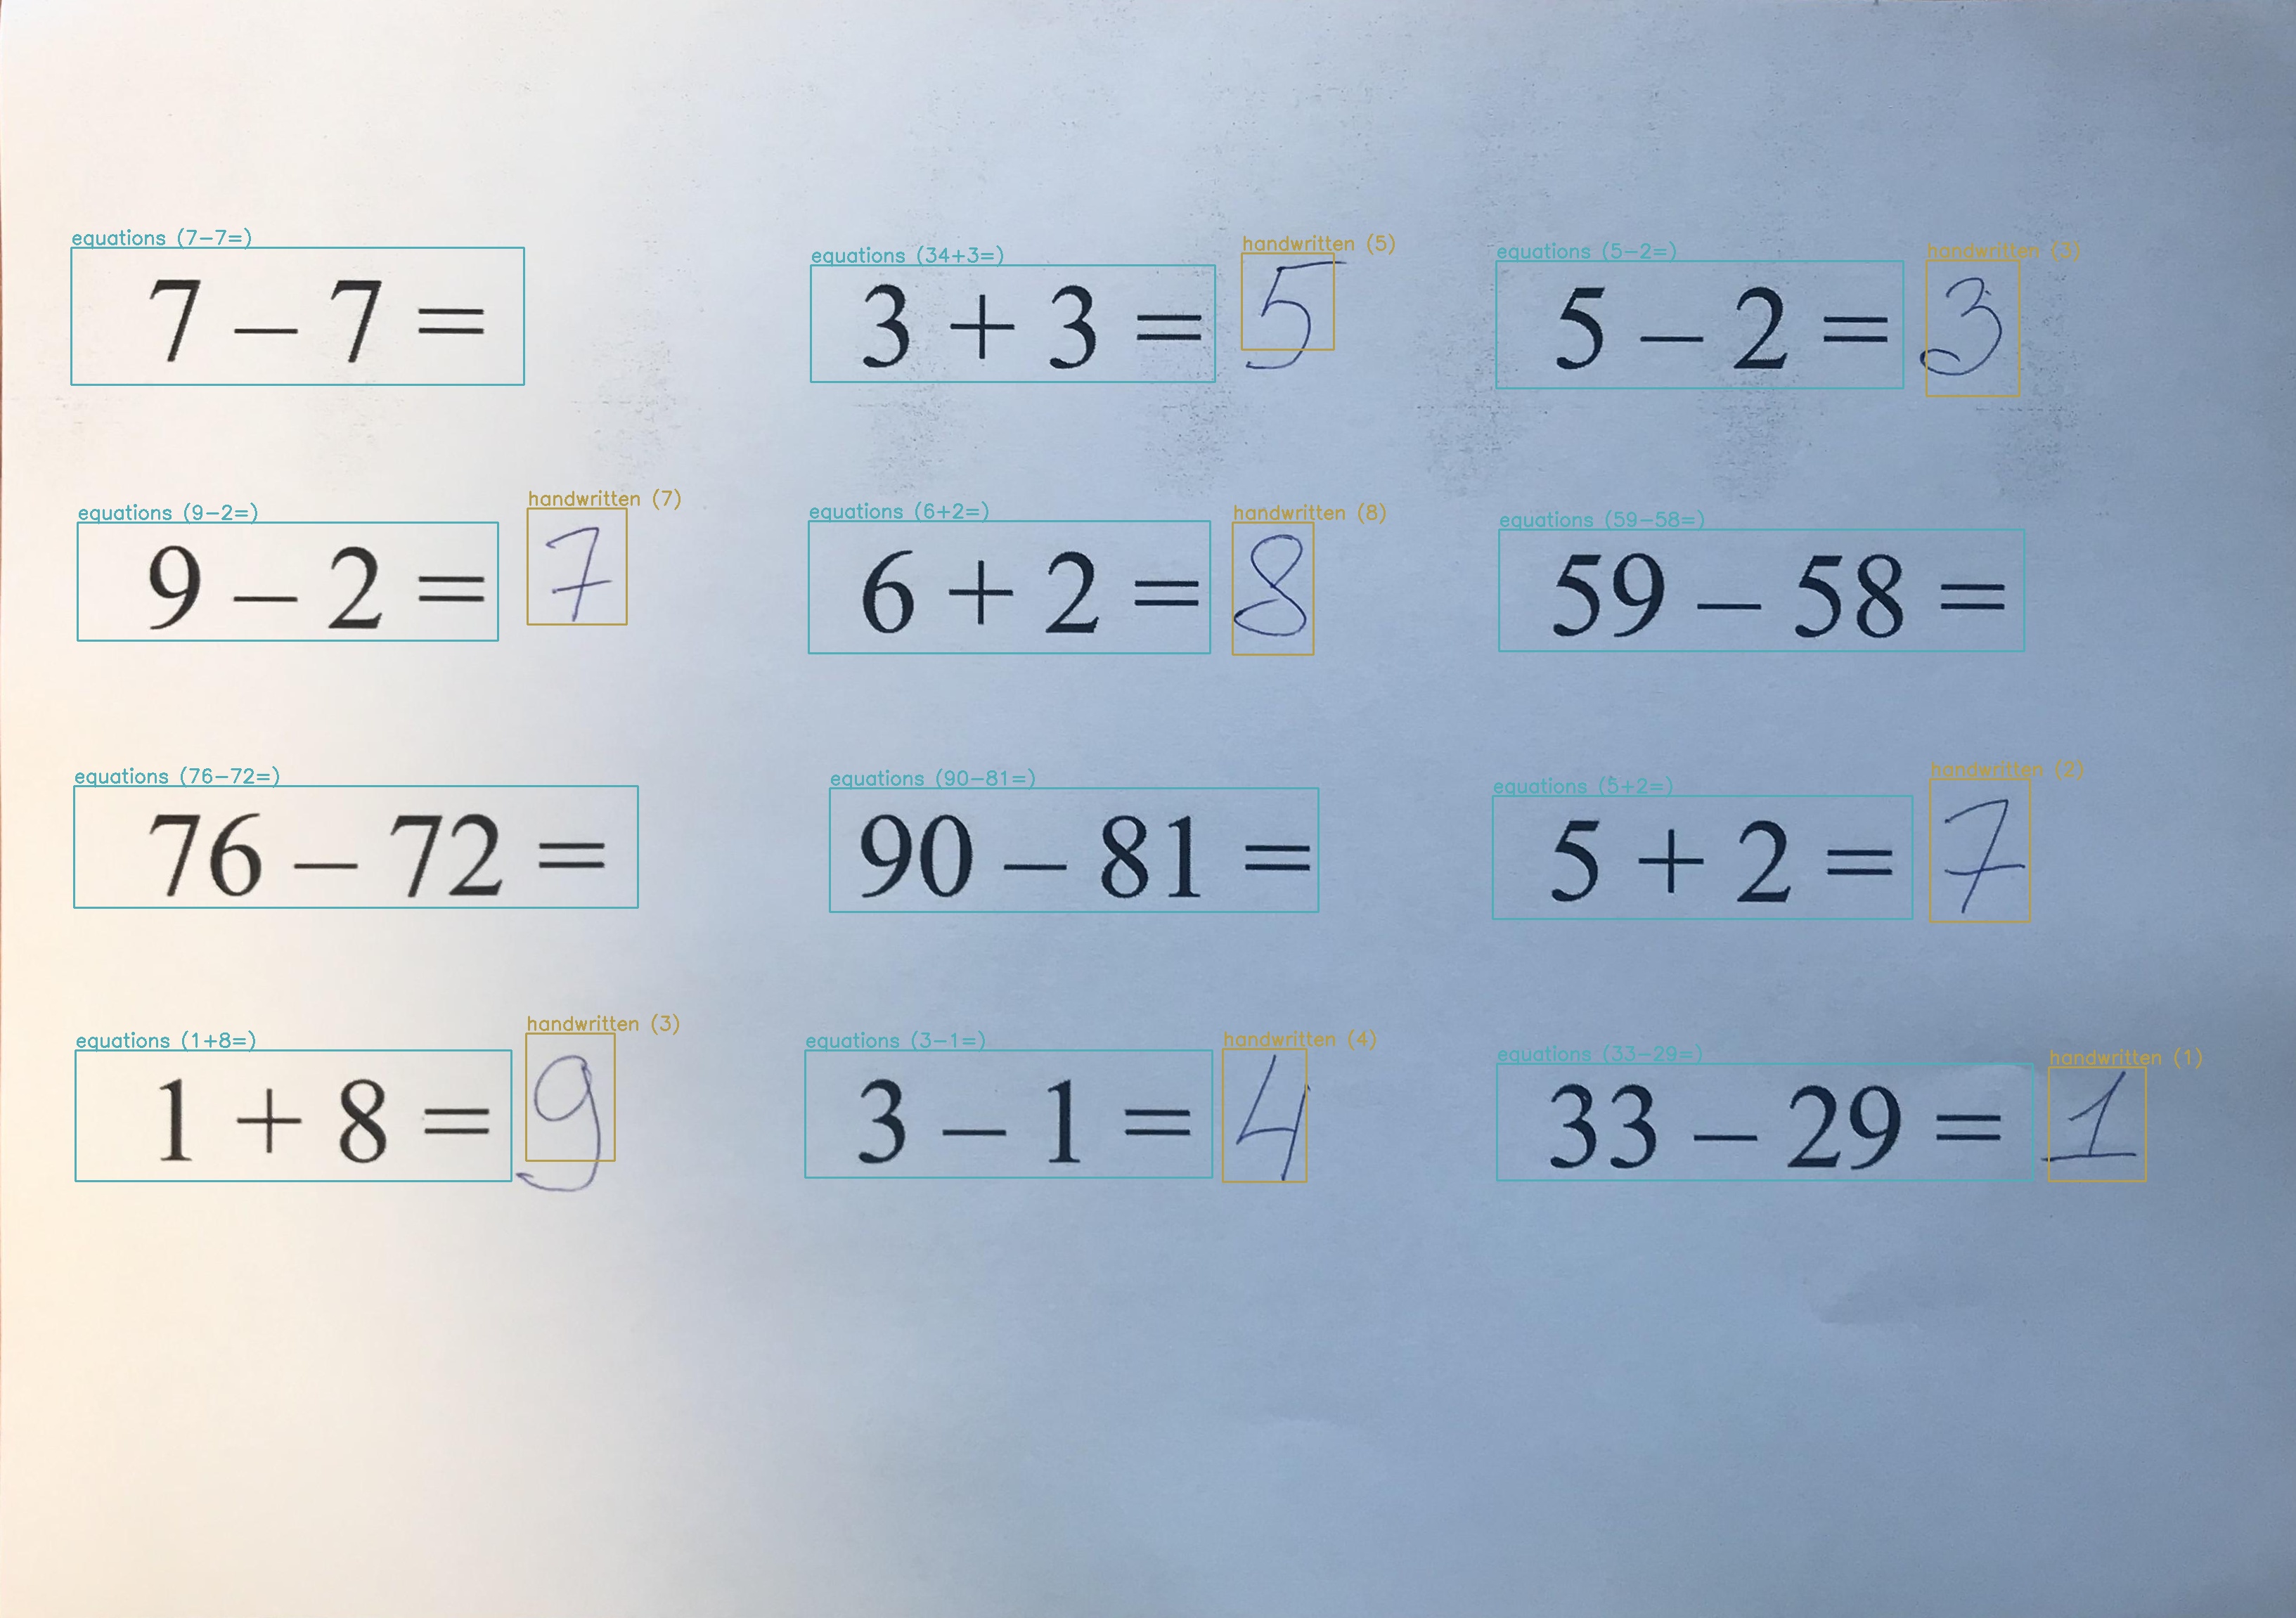 equations (7-7=)
7 – 7 =
equations (34+3=) handwritten (5)
3 + 3 = 5
equations (5-2=) handwritten (3)
5 – 2 = 3
equations (9-2=) handwritten (7)
9 – 2 = 7
equations (6+2=) handwritten (8)
6 + 2 = 8
equations (59-58=)
59 – 58 =
equations (76-72=)
76 – 72 =
equations (90-81=)
90 – 81 =
equations (5+2=) handwritten (2)
5 + 2 = 7
equations (1+8=) handwritten (3)
1 + 8 = 9
equations (3-1=) handwritten (4)
3 – 1 = 4
equations (33-29=) handwritten (1)
33 – 29 = 1